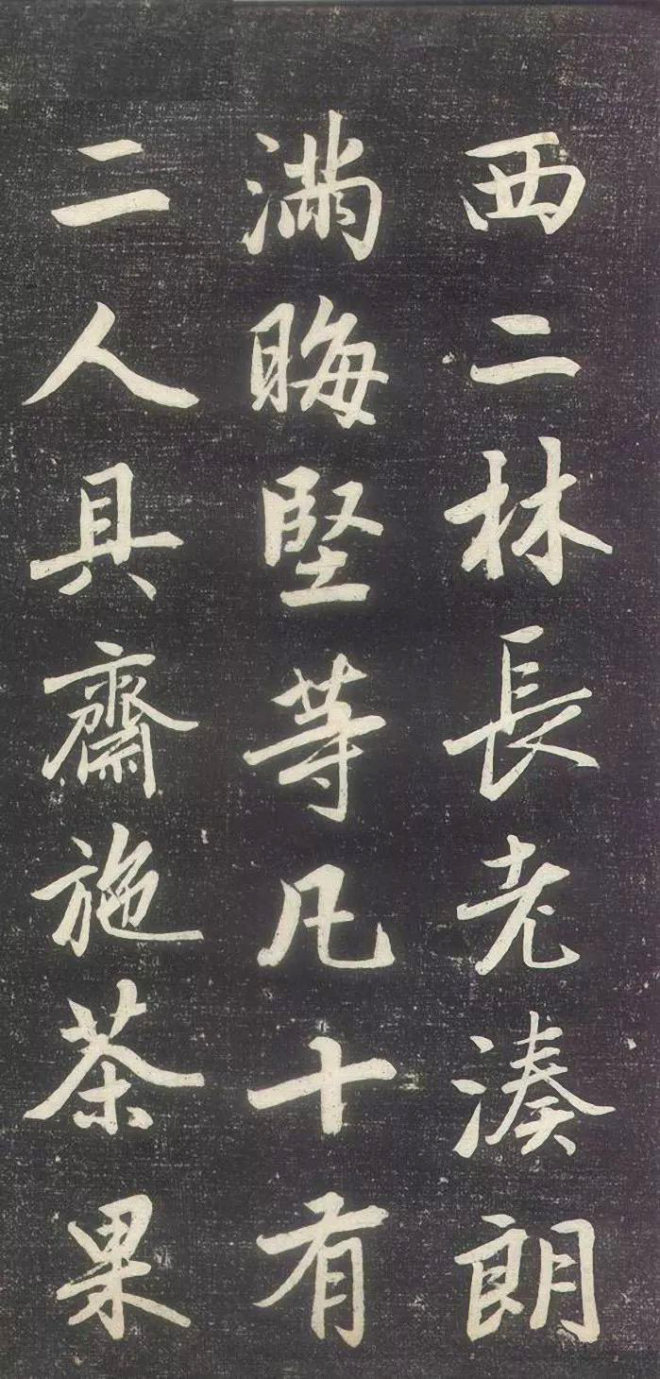 西二林長老湊朗
滿晦堅等凡十有
二人具齋施茶果